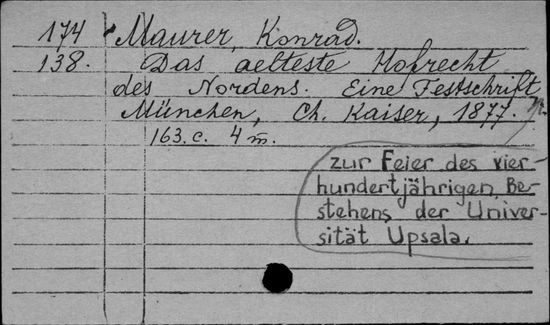 174 Maurer, Konrad.
138. Das aelteste Hofrecht
des Nordens. Eine Festschrift
München, Ch. Kaiser, 1877.
163.c. 4 m.
zur Feier des vier-
hundertjährigen Be-
stehens der Univer-
sität Upsala.